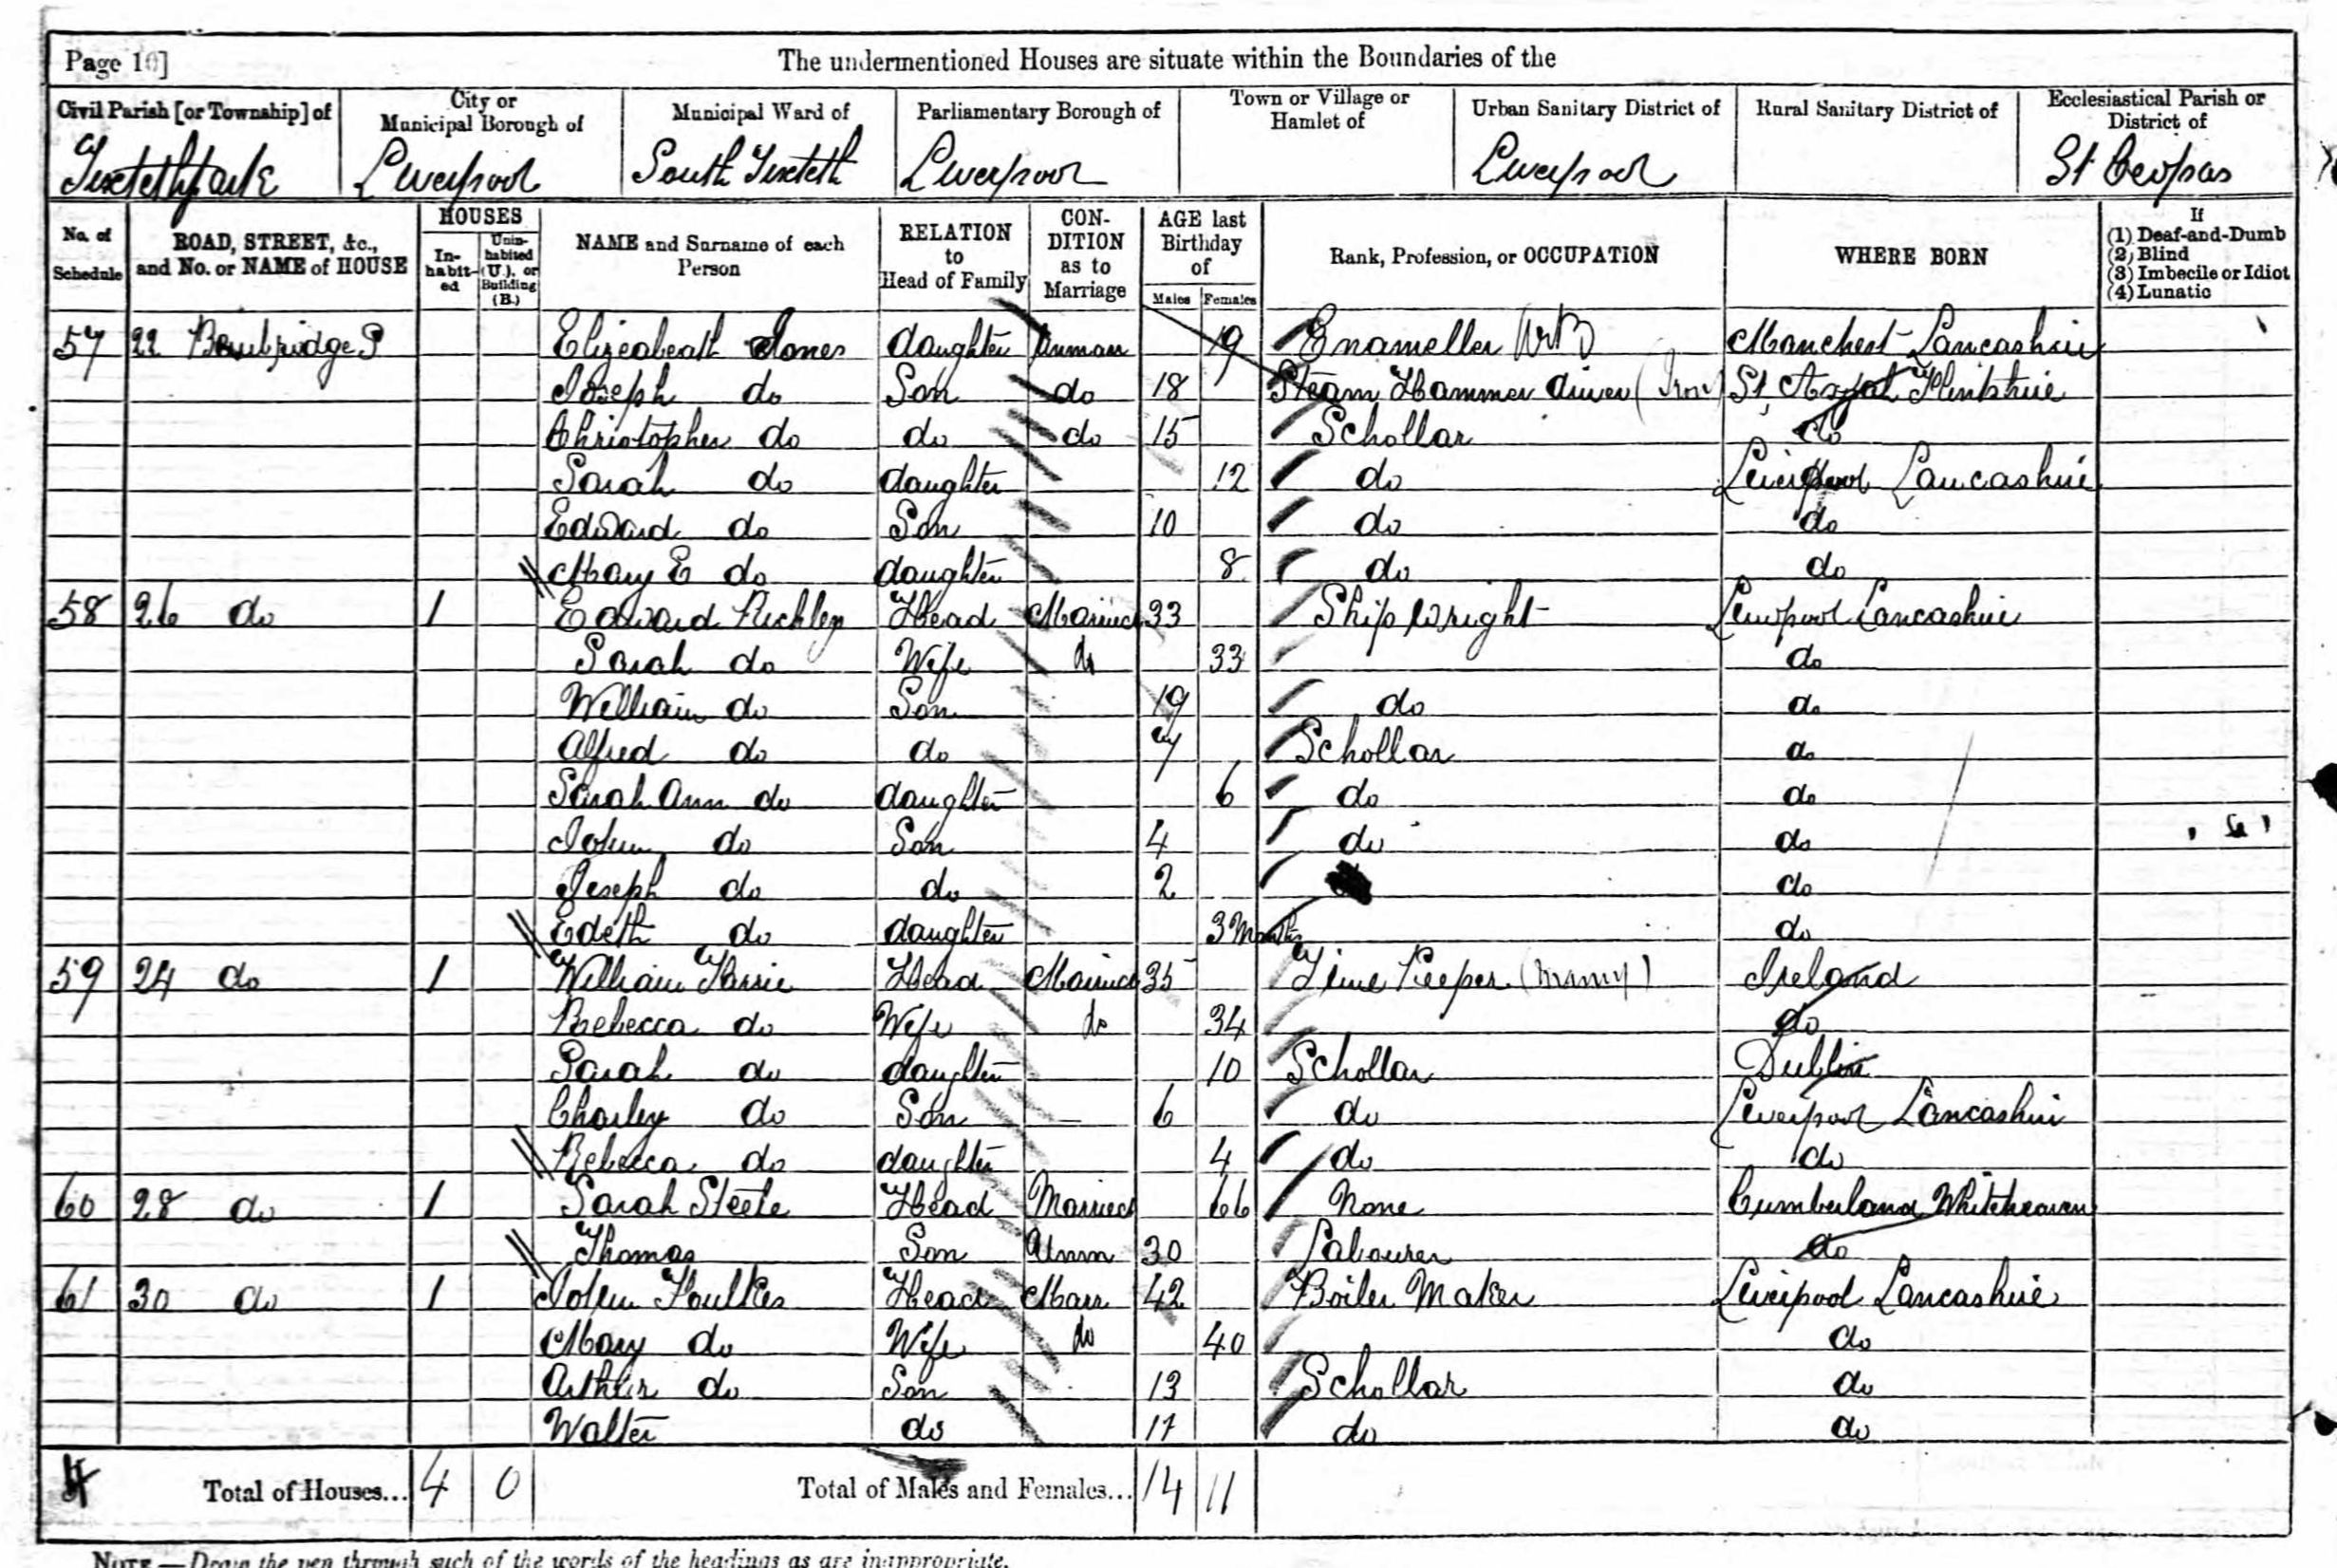 Page 10] The undermentioned Houses are situate within the Boundaries of the
Civil Parish [or Township] of City or Municipal Borough of Municipal Ward of Parliamentary Borough of Town or Village or Hamlet of Urban Sanitary District of Rural Sanitary District of Ecclesiastical Parish or District of
Liverpool South Toxteth Liverpool Liverpool St Cleopas
No. of Schedule ROAD, STREET, &c., and No. or NAME of HOUSE HOUSES In-habit-ed Unin-habited (U.), or Building (B.) NAME and Surname of each Person RELATION to Head of Family CON-DITION as to Marriage AGE last Birthday of Males Females Rank, Profession, or OCCUPATION WHERE BORN If (1) Deaf-and-Dumb (2) Blind (3) Imbecile or Idiot (4) Lunatic
57 22 Elizeabeath Jones daughter Unmarr 19 Enameller Manchest Lancashire
Joseph do Son do 18 Steam Hammer driver (Iron) St Asaph Flintshire
Christopher do do do 15 Schollar do
Sarah do daughter 12 do Liverpool Lancashire
Edward do Son 10 do do
Mary E do daughter 8 do do
58 26 do 1 Edward Head Married 33 Ship Wright Liverpool Lancashire
Sarah do Wife do 33 do
William do Son 19 do do
Alfred do do 7 Schollar do
Sarah Ann do daughter 6 do do
John do Son 4 do do
Joseph do do 2 do
Edeth do daughter 3 Months do
59 24 do 1 William Head Married 35 Time Keeper Ireland
Rebecca do Wife do 34 do
Sarah do daughter 10 Schollar Dublin
Charley do Son 6 do Liverpool Lancashire
Rebecca do daughter 4 do do
60 28 do 1 Sarah Steele Head Married 66 None Cumberland Whitehaven
Thomas Son Unm 30 Labourer do
61 30 do 1 John Foulkes Head Marr 42 Boiler Maker Liverpool Lancashire
Mary do Wife do 40 do
Arthur do Son 13 Schollar do
Walter do 11 do do
4 Total of Houses... 4 0 Total of Males and Females... 14 11
NOTE.—Draw the pen through such of the words of the headings as are inappropriate.